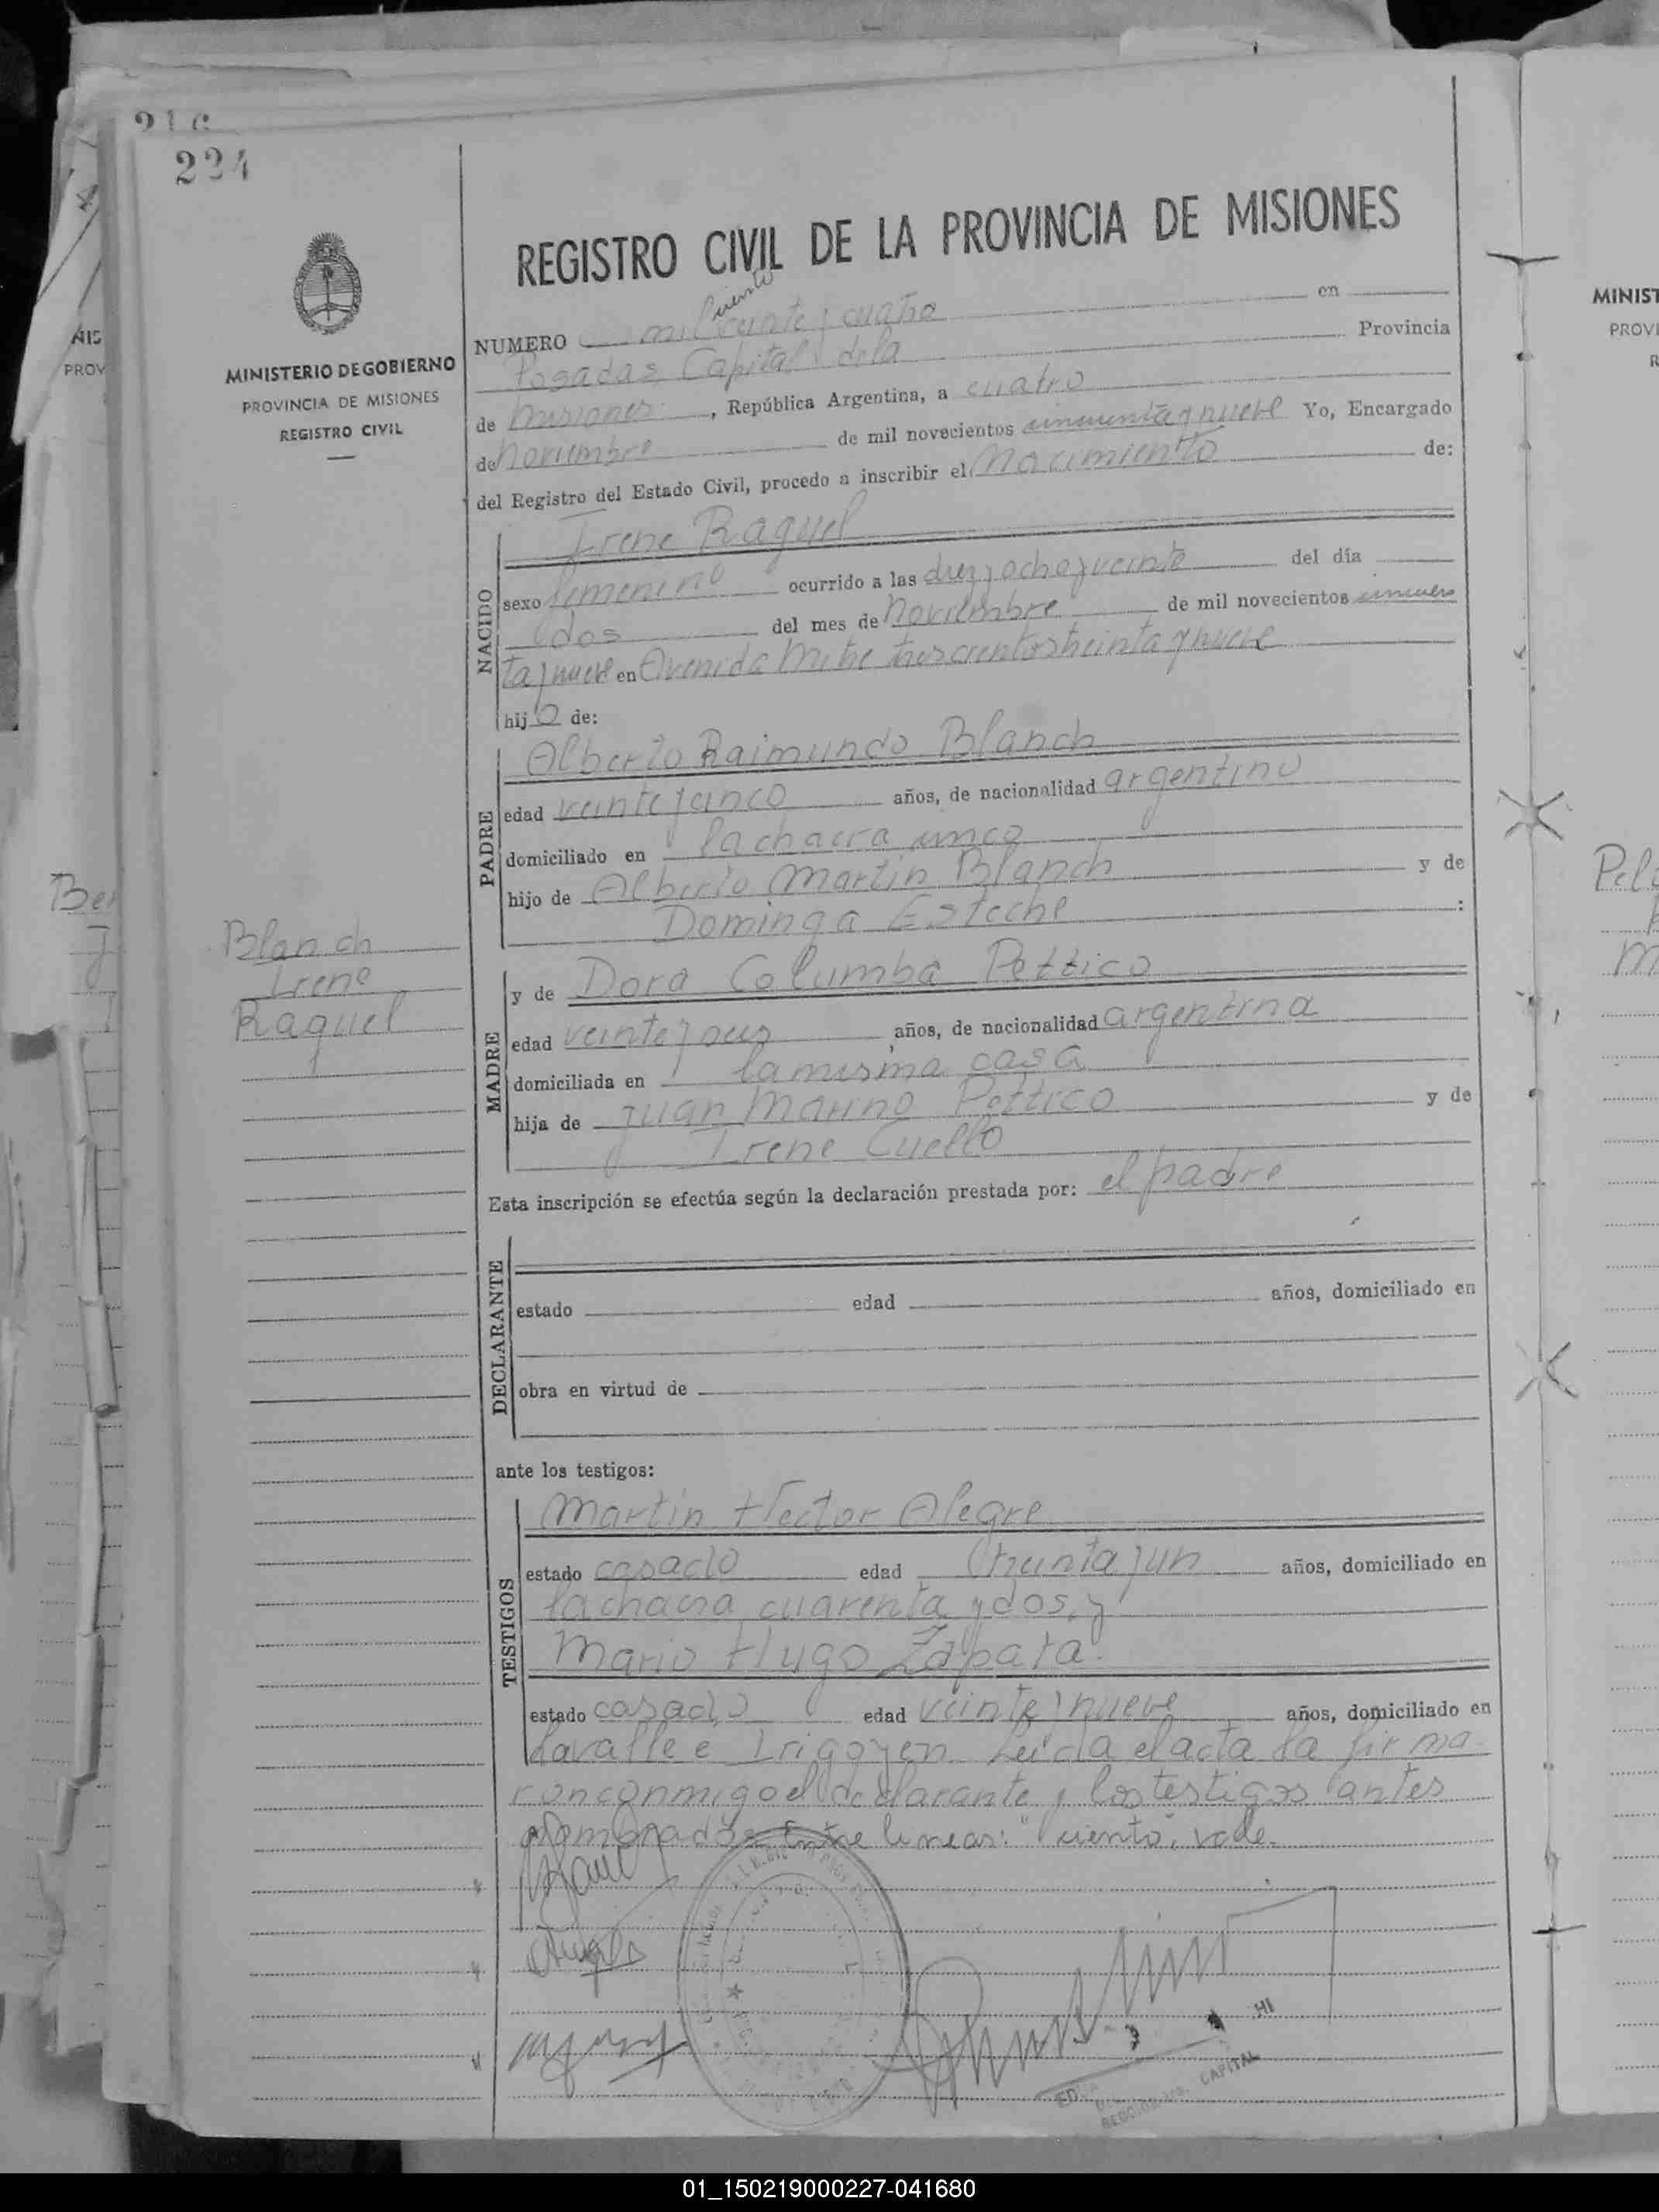 224
MINISTERIO DE GOBIERNO
PROVINCIA DE MISIONES
REGISTRO CIVIL
Blanch
Irene
Raquel
REGISTRO CIVIL DE LA PROVINCIA DE MISIONES
ciento
NUMERO mil veinte y cuatro en
Posadas Capital de la Provincia
de Misiones, República Argentina, a cuatro
de noviembre de mil novecientos cincuenta y nueve Yo, Encargado
del Registro del Estado Civil, procedo a inscribir el Nacimiento de:
NACIDO
Irene Raquel
sexo femenino ocurrido a las diez y ocho y veinte del día
dos del mes de noviembre de mil novecientos cincuen
ta y nueve en Avenida Mitre trescientos treinta y nueve
hijo de:
PADRE
Alberto Raimundo Blanch
edad veinte y cinco años, de nacionalidad argentino
domiciliado en la chacra
hijo de Alberto Martin Blanch y de
Dominga Esteche :
MADRE
y de Dora Columba Pettico
edad veinte y años, de nacionalidad argentina
domiciliada en la misma casa
hija de Juan Marino Pettico y de
Irene Cuello
Esta inscripción se efectúa según la declaración prestada por: el padre
DECLARANTE
estado edad años, domiciliado en
obra en virtud de
ante los testigos:
TESTIGOS
Martin Hector Alegre
estado casado edad treinta y un años, domiciliado en
la chacra cuarenta y dos, y
Mario Hugo Zapata.
estado casado edad veinte y nueve años, domiciliado en
Lavalle e Irigoyen. Leida el acta la firma
ron conmigo el declarante y los testigos antes
nombrados Entre lineas: "ciento", vale.
CAPITAL
MINIST
PROVI
01_150219000227-041680